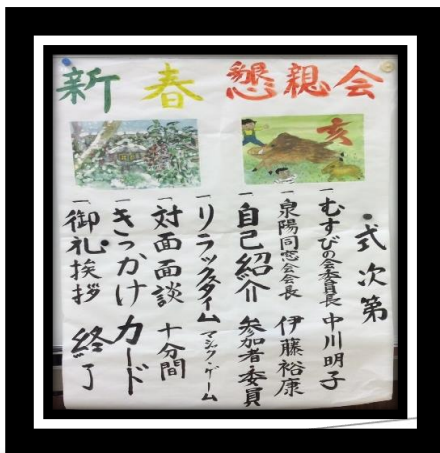 新春懇親会
亥
・式次第
一むすびの会委員長 中川明子
一泉陽同窓会会長 伊藤裕康
一自己紹介 参加者委員
一リラックスタイム マジック・ゲーム
一対面面談 十分間
一きっかけカード
一御礼挨拶 終了